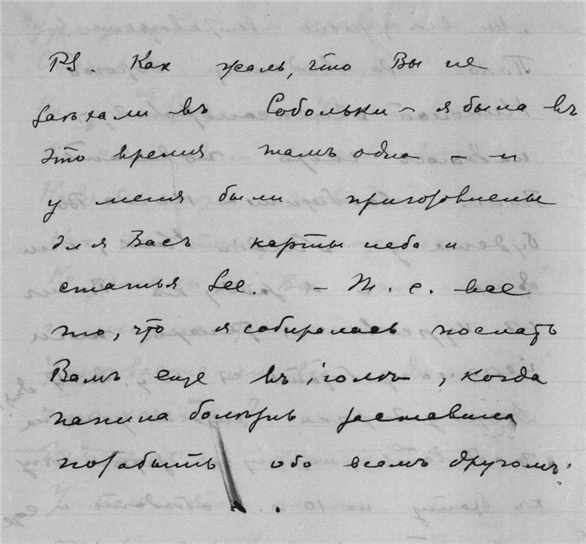 PS. Какъ жаль, что Вы не
заѣхали въ Собольки – я была въ
это время тамъ одна – и
у меня были приготовлены
для Васъ карты неба и
статья See. – Т. е. все
то, что я собиралась послать
Вамъ еще въ, когда
папина болѣзнь заставила
позабыть обо всемъ другомъ.